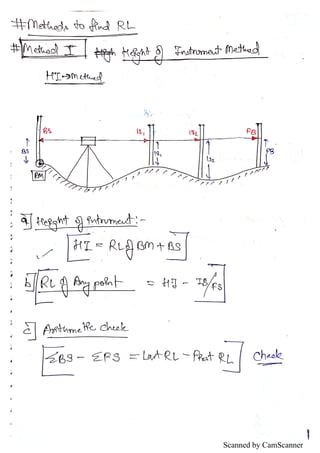 # Methods to find RL
# Method I Height of Instrument Method
HI → Method
BS IS₁ IS₂ FS
BS IS₁ IS₂ FS
BM
a] Height of intrument:-
HI = RL of BM + BS
b] RL of Any point = HI - IS/FS
c] Arithmetic check
ΣBS - ΣFS = Last RL - First RL check
Scanned by CamScanner